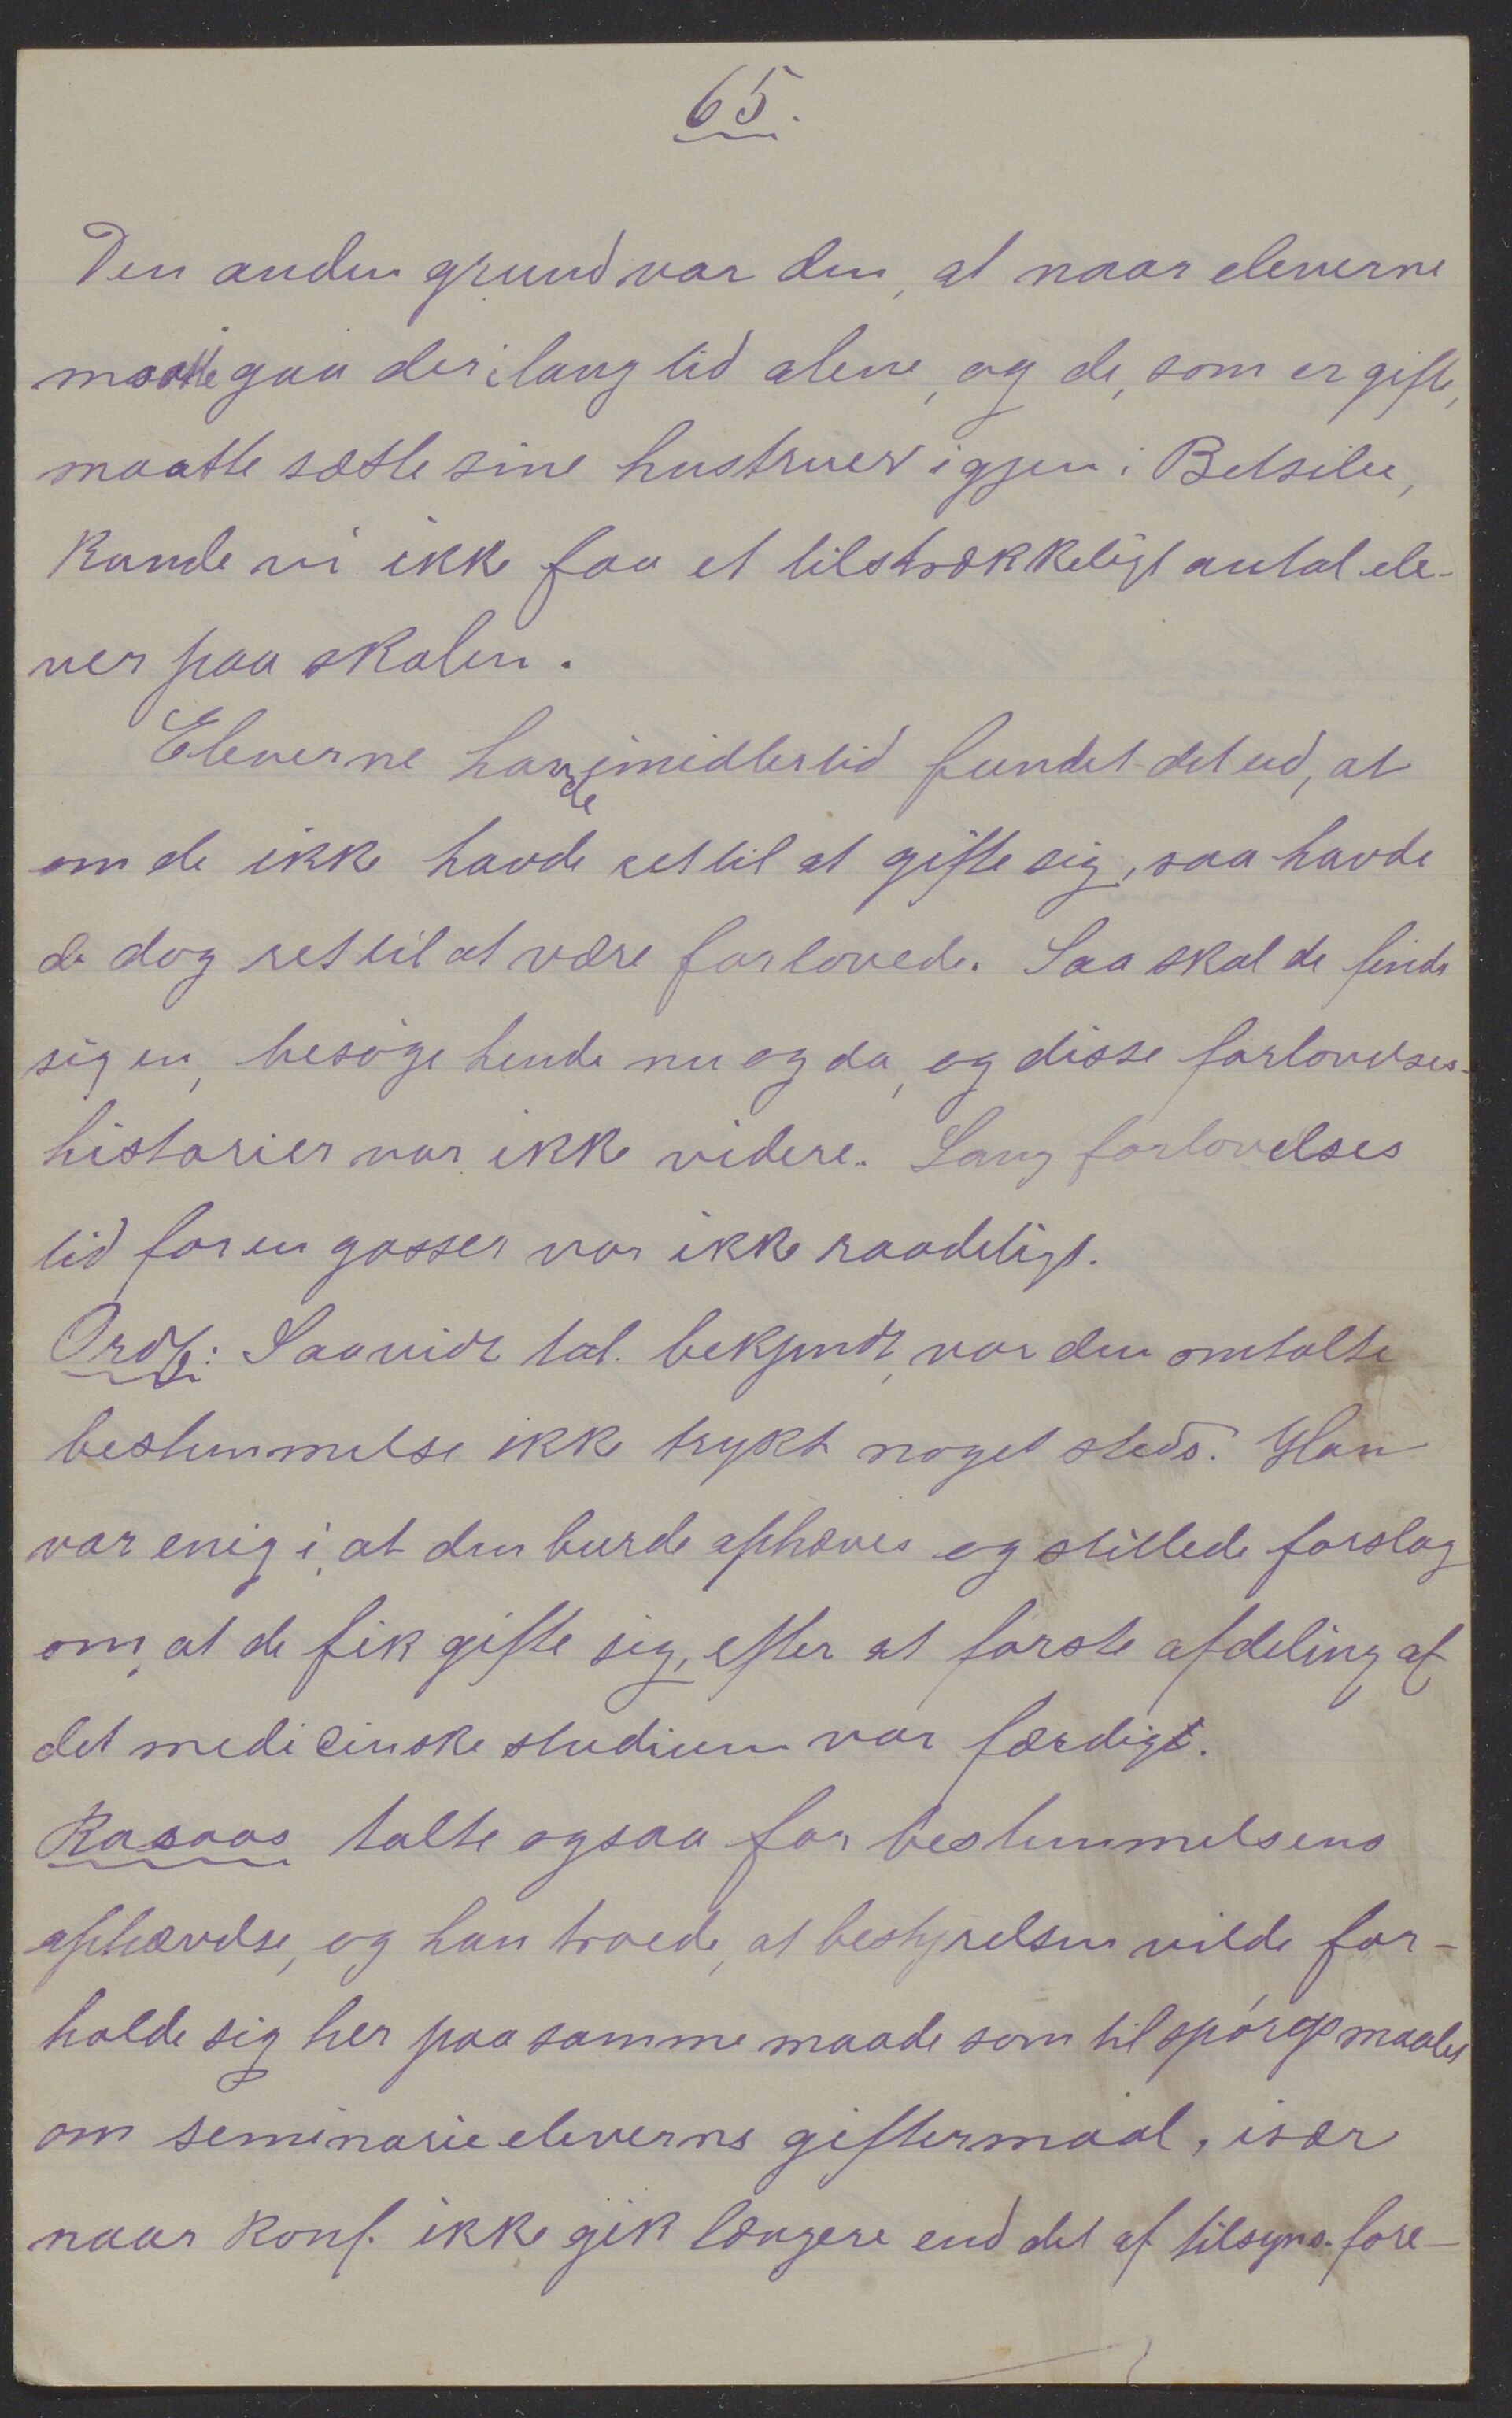 65.
Den anden grund var den, at naar eleverne
maatte gaa der i lang tid alene, og de, som er gifte,
maatte sætte sine hustruer igjen i Betsileo,
kunde vi ikke faa et tilstrækkeligt antal ele-
ver paa skolen.
Eleverne havde imidlertid fundet det ud, at
om de ikke havde ret til at gifte sig, saa havde
de dog ret til at være forlovede. Saa skal de finde
sig en, besøge hende nu og da, og disse forlovelses-
historier var ikke videre. Lang forlovelses
tid for en gasser var ikke raadeligt.
Ordf: Saavidt tal. bekjendt, var den omtalte
bestemmelse ikke trykt noget steds. Han
var enig i, at den burde ophæves og stillede forslag
om, at de fik gifte sig, efter at første afdeling af
det medicinske studium var færdigt.
Rasaas talte ogsaa for bestemmelsens
ophævelse, og han troede, at bestyrelsen vilde for-
holde sig her paa samme maade som til spørgsmaalet
om seminarieelevernes giftermaal, især
naar konf. ikke gik længere end det af tilsyns. fore-